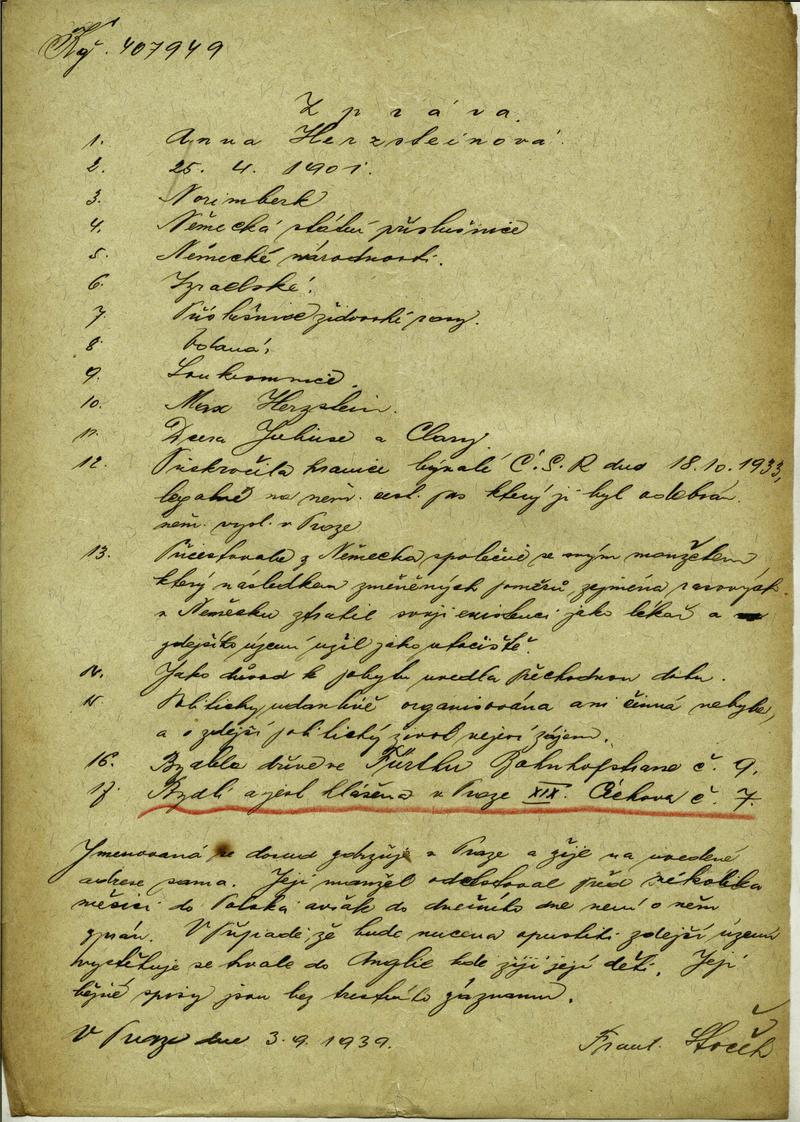 407949
Zpráva
1. Anna Herzsteinová
2. 25. 4. 1901.
3. Norimberk
4. Německá státní příslušnice
5. Německé národnosti.
6. Izraelské.
7. Příslušnice židovské rasy.
8. Vdaná,
9. Soukromnice.
10. Max Herzstein.
11. Dcera Juliuse a Clary
12. Překročila hranice bývalé Č.S.R dne 18.10.1933,
legálně na něm. cest. pas který jí byl odebrán
něm. vysl. v Praze
13. Přicestovala z Německa společně se svým manželem
který následkem změněných poměrů, zejména rasových
v Německu ztratil svoji existenci jako lékař a
zdejšího území užil jako útočiště.
14. Jako důvod k pobytu uvedla přechodnou dobu.
15. Politicky udánlivě organisována ani činná nebyla,
a o zdejší politický život nejeví zájem.
16. Bydlela dříve ve Fürthu Bahnhofstrasse č. 9.
17. Bydlí a jest hlášena v Praze XIX. Čechova č. 7.
Jmenovaná se dosud zdržuje v Praze a žije na uvedené
adrese sama. Její manžel odcestoval před několika
měsíci do Polska avšak do dnešního dne není o něm
zpráv. V případě, že bude nucena opustiti zdejší území
vystěhuje se trvale do Anglie kde žijí její děti. Její
běžné spisy jsou bez trestního záznamu.
V Praze dne 3.9.1939.
Frant.